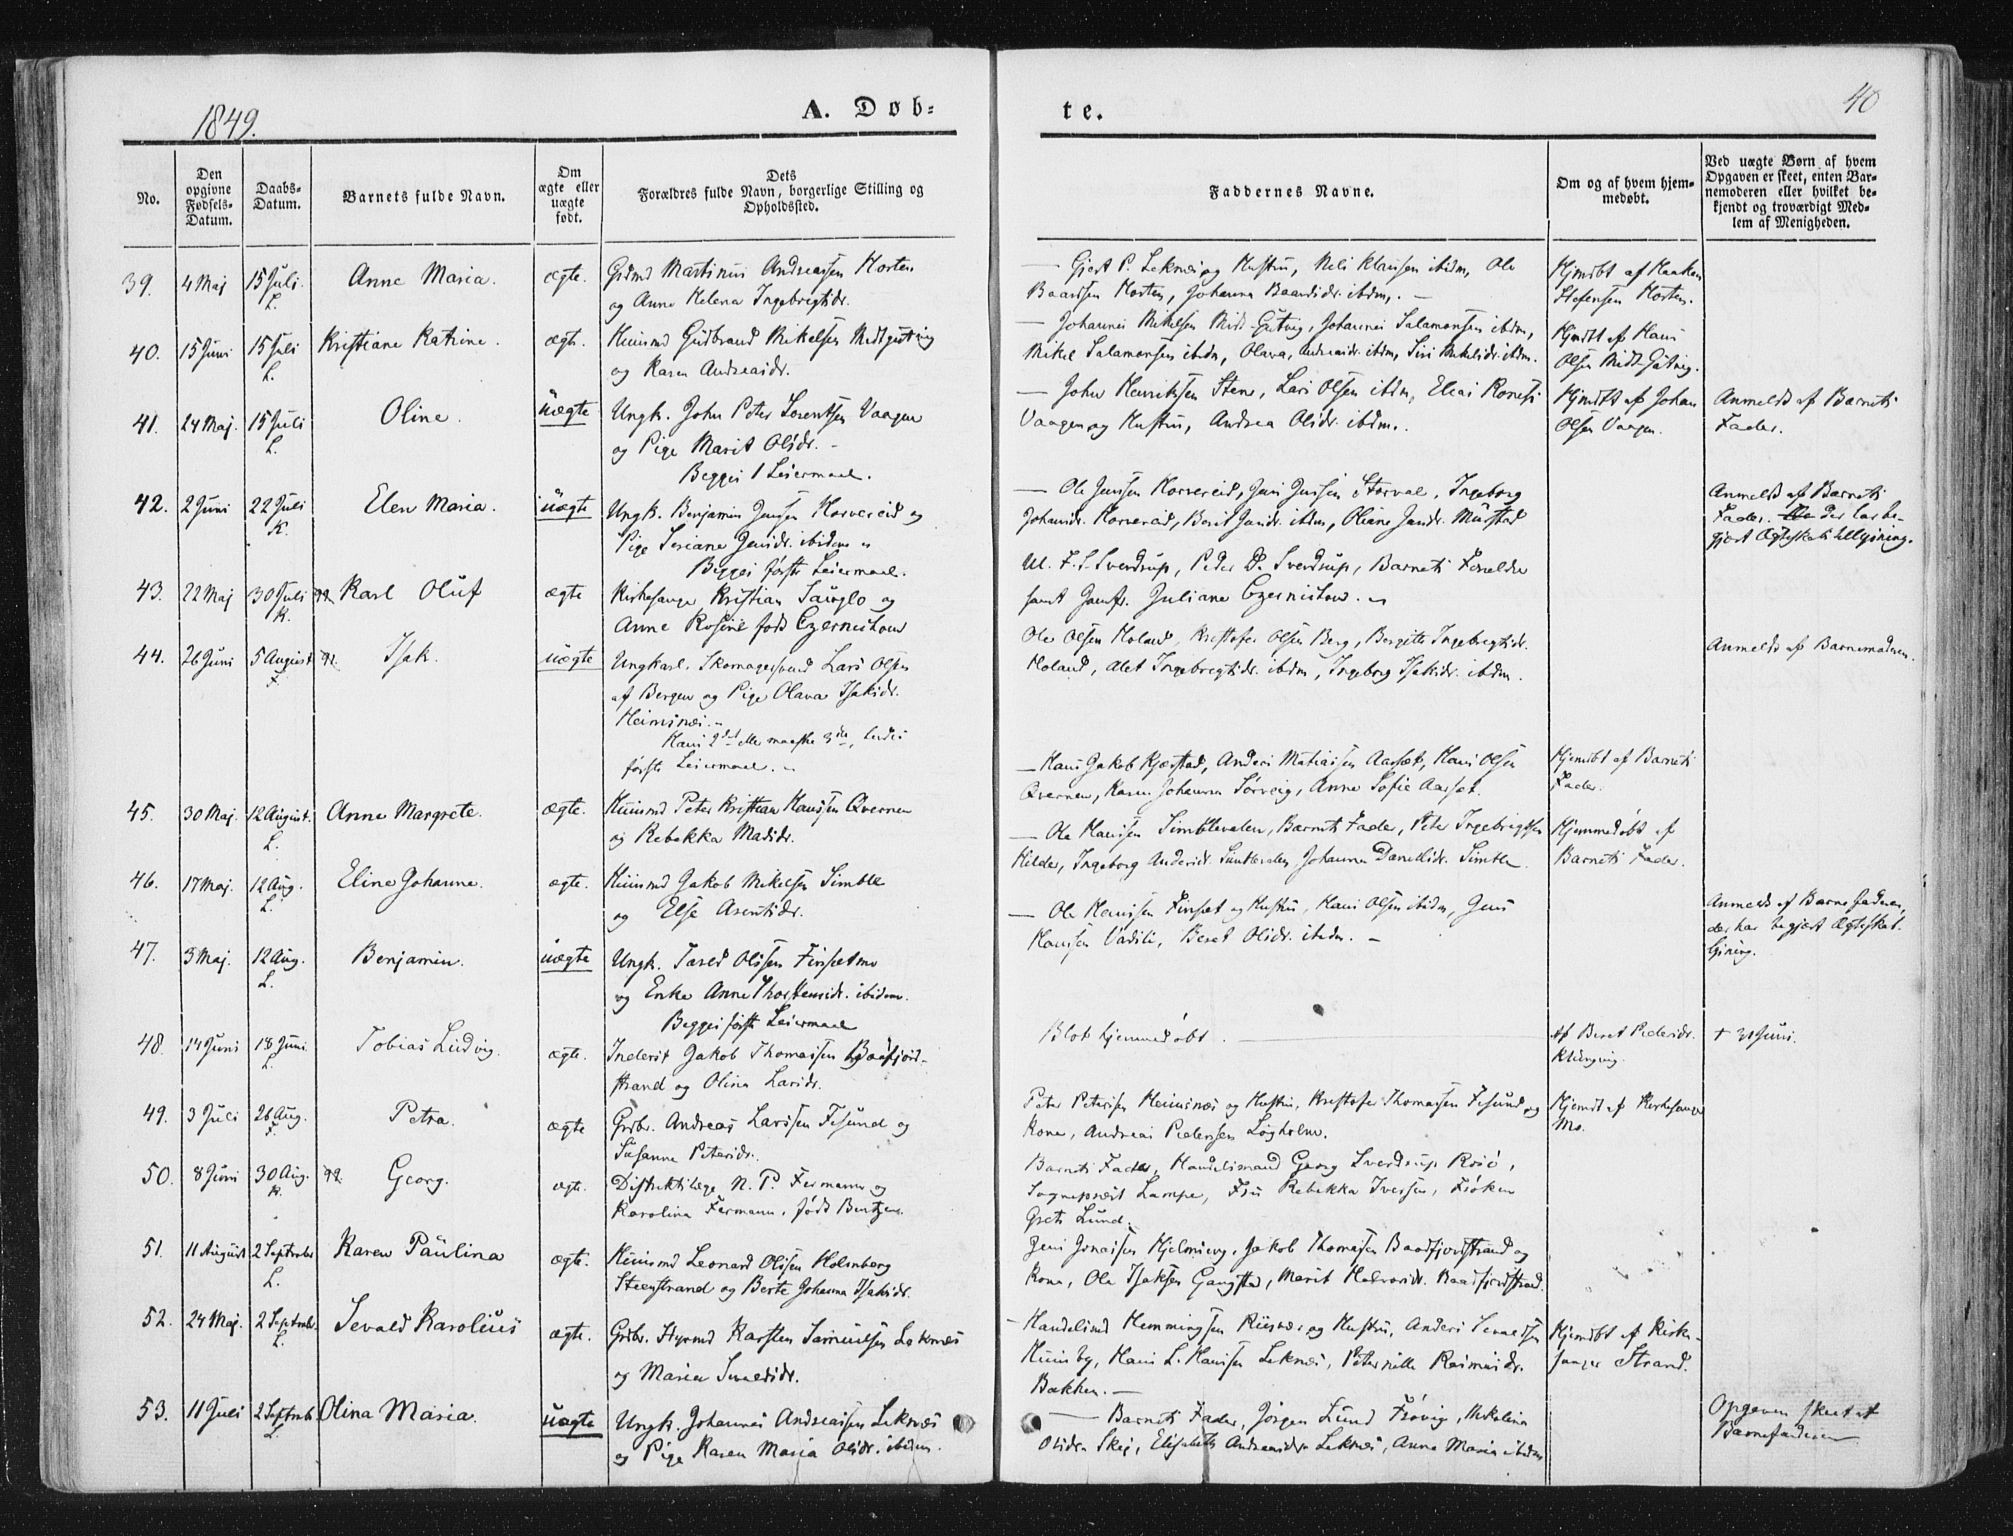 1849.
A. Døb-
te.
40
No.
Den opgivne Fødsels-Datum.
Daabs-Datum.
Barnets fulde Navn.
Om ægte eller uægte født.
Dets Forældres fulde Navn, borgerlige Stilling og Opholdssted.
Faddernes Navne.
Om og af hvem hjem-medøbt.
Ved uægte Børn af hvem Opgaven er skeet, enten Bar-nemoderen eller hvilket be-kjendt og troværdigt Med-lem af Menigheden.
39. 4 Maj 15 Juli. L. Anne Maria. ægte. Grdmd Martinus Andreassen Horten
og Anne Helena Ingebrigtsdr.
Gjert P. Leknæs og Hustru, Nels Klausen ibidm, Ole
Baardsen Horten, Johanna Baardsdr. ibdm. —
Hjmdbt af Haaken
Stefensen Horten.
40. 15 Juni 15 Juli L. Kristiane Katrine. ægte. Huusmd Gudbrand Mikelsen Midtgutvig
og Karen Andreasdr.
— Johannes Mikelsen Midt-Gutvig, Johannes Salamonsen ibidm,
Mikel Salamonsen ibdm, Olava Andreasdr. ibdm, Siri Mikelsdr. ibdm.
Hjmdbt af Hans
Olsen Midt-Gutvig.
41. 24 Maj. 15 Juli L. Oline. uægte Ungk. John Peter Lorentsen Vaagen
og Pige Marit Olsdr. —
Begges 1 Leiermaal.
— John Henriksen Stene, Lars Olsen ibdm, Elias
Vaagen og Hustru, Andrea Olsdr. ibdm.
Hjmdbt af Johan
Olsen Vaagen.
Anmeldt af Barnets
Fader.
42. 2 Juni 22 Juli K. Elen Maria. uægte Ungk. Benjamin Jensen Horvereid og
Pige Seriane Jensdr. ibidem
Begges første Leiermaal.
— Ole Jensen Horvereid, Jens Jensen Storval, Ingeborg
Johansdr. Horvereid, Berit Jansdr. ibdm, Oliane Jansdr. Murstad
Anmeldt af Barnets
Fader. der har be-
gjert Ægteskabs tillysning.
43. 22 Maj 30 Juli K. Karl Oluf ægte Kirkesanger Kristian Sauglo og
Anne Rosine født Czernichow
M. F. S. Sverdrup, Peder D. Sverdrup, Barnets Forældre
samt Jomfr. Juliane Czernichow.
44. 26 Juni 5 August F. Isak. uægte Ungkarl. Skomagersvend Lars Olsen
af Bergen og Pige Olava Isaksdr.
Heimsnæs.
Hans 2det eller maaske 3die, hendes
første Leiermaal.
Ole Olsen Holand, Kristofer Olsen Berg, Bergitte Ingebrigtsdr.
Holand, Alet Ingebrigtsdr. ibidm, Ingeborg Isaksdr. ibdm.
Anmeldt af Barnemoderen.
45. 30 Maj. 12 August. L. Anne Margrete. ægte. Huusmd Peter Kristian Hansen Qvernen
og Rebekka Madsdr.
— Hans Jakob Kjærstad, Anders Matiasen Aarsæt, Hans Olsen
Qvernen, Karen Johanna Sørvig, Anne Sofie Aarset.
Hjemdbt af Barnets
Fader.
46. 17 Maj. 12 Aug. L. Eline Johanne. ægte. Huusmd Jakob Mikelsen Simble
og Else Arentsdr.
— Ole Hansen Simblevalen, Barnets Fader, Peter Ingebrigtsen
Hilde, Ingeborg Andersdr. Simblevalen Johanna Danielsdr. Simble
Hjemmedøbt af
Barnets Fader.
47. 3 Maj. 12 Aug. L. Benjamin. uægte Ungk. Tarald Olssen Finsetmo
og Enke Anne Thorstensdr. ibidem.
Begges første Leiermaal
— Ole Hansen Finset og Hustru, Hans Olsen ibidm, Jens
Hansen Vadili, Beret Olsdr. ibdm. —
Anmeldt af Barnefaderen,
der har begjært Ægteskab.
lysning.
48. 14 Juni 18 Juni. L. Tobias Ludvig. ægte. Inderst Jakob Thomassen Baafjord-
strand og Olina Larsdr.
Blot hjemmedøbt.
af Beret Pedersdr.
Klungvig.
+ 30 Juni.
49. 3 Juli 26 Aug. F. Petra. ægte Grbr. Andreas Larssen Fesund og
Susanne Petersdr.
Peter Petersen Heimsnæs og Hustru, Kristofer Thomassen Fesund og
Kone, Andreas Pedersen Løgholm.
Hjemdt af Kirkesanger
Mo.
50. 8 Juni 30 Aug. K. Georg. ægte. Distriktslæge N. P. Fermann og
Karolina Fermann, født Bentzen.
Barnets Fader, Handelsmand Georg Sverdrup Risø,
Sognepræst Lampe, Fru Rebekka Iversen, Frøken
Grete Lund.
51. 11 August 2 Septmbr L. Karen Paulina ægte. Huusmd Leonard Olssen Holmberg
Steenstrand og Berte Johanna Isaksdr.
Jens Jonassen Hjelmsevg, Jakob Thomassen Baadfjordstrand og
Kone, Ole Isaksen Gangstad, Marit Halvorsdr. Baadfjordstrand.
52. 24 Maj. 2 Septmbr. L. Sevald Karolius ægte. Grdbr. Styrmd Karsten Samuelsen Leknæs
og Maria Sevaldsdr.
— Handelsmd Hemmingsen Risnæs og Hustru, Anders Sevaldsen
Huusby, Hans L. Hansen Leknæs, Peternille Rasmusdr.
Bakken. —
Hjemdbt af Kirke-
sanger Strand.
53. 11 Juli 2 Septmb. L. Olina Maria. uægte Ungk. Johannes Andreassen Leknæs
og Pige Karen Maria Olsdr. ibidm.
— Barnets Fader, Jørgen Lund Frøvig, Nikolina
Olsdr. Skej, Elisabeth Andreasdr. Leknæs, Anne Maria ibdm
Opgaven skeet af
Barnefaderen